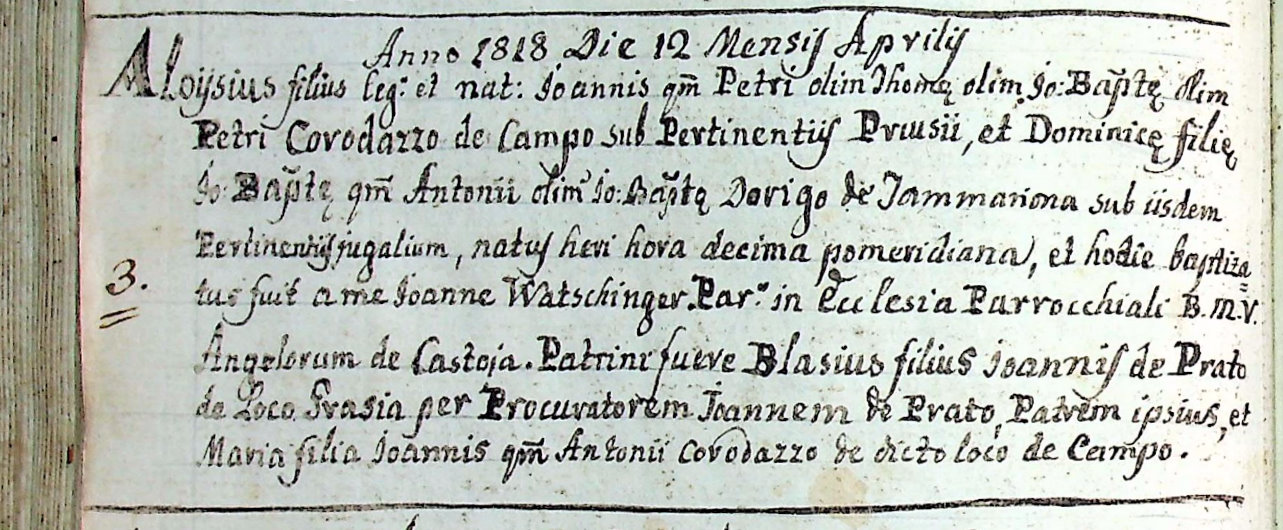 Anno 1818 Die 12 Mensis Aprilis
Aloijsius filius leg: et nat: Joannis qm̃ Petri olim Thomę olim Jo: Bap̃tę olim
Petri Corodazzo de Campo sub Pertinentijs Priusii, et Dominicę filię
Jo: Bap̃tę qm̃ Antonii olim Jo: Bap̃tę Dorigo de Jammariona sub iisdem
Pertinentijs jugalium, natus heri hora decima pomeridiana, et hodie baptiza=
tus fuit a me Joanne Watschinger Par.° in Ecclesia Parrocchiali B.M.V.
3. Angelorum de Castoja. Patrini fuere Blasius filius Joannis de Prato
de Loco Grasia per Procuratorem Joannem de Prato, Patrem ipsius, et
Maria filia Joannis qm̃ Antonii Corodazzo de dicto loco de Campo.